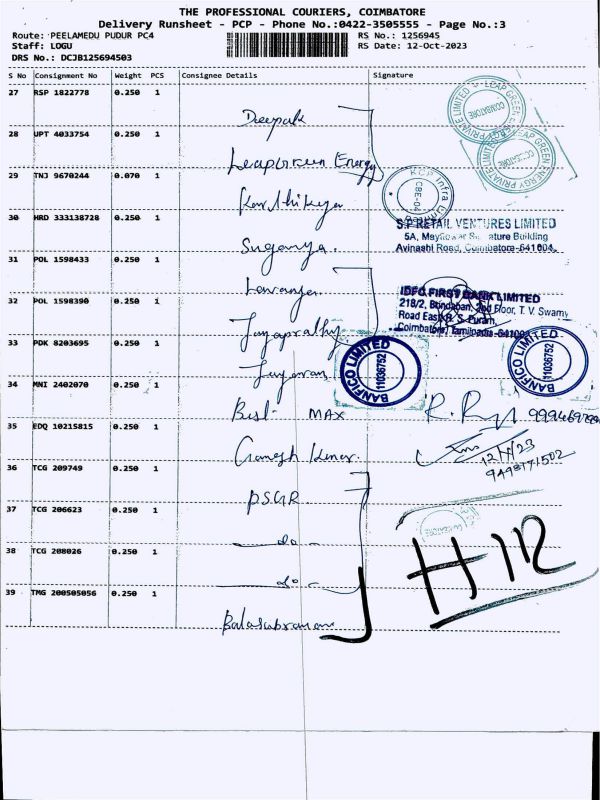 THE PROFESSIONAL COURIERS, COIMBATORE
Delivery Runsheet - PCP - Phone No.:0422-3505555 - Page No.:3
Route: PEELAMEDU PUDUR PC4
RS No.: 1256945
Staff: LOGU
RS Date: 12-Oct-2023
DRS No.: DCJB125694503
S No Consignment No Weight PCS Consignee Details Signature
27 RSP 1822778 0.250 1
Deepak
LEAP GREEN ENERGY PRIVATE LIMITED
COIMBATORE
28 UPT 4033754 0.250 1
LeapGreen Energy
LEAP GREEN ENERGY PRIVATE LIMITED
COIMBATORE
29 TNJ 9670244 0.070 1
Karthikeya
KCP Infra Limited
CBE-04
30 HRD 333138728 0.250 1
Suganya.
S.P RETAIL VENTURES LIMITED
5A, Mayflower Signature Building
Avinashi Road, Coimbatore-641004.
31 POL 1598433 0.250 1
Lavanya
IDFC FIRST BANK LIMITED
218/2, Brindaban, 2nd Floor, T. V. Swamy
Road East, R. S. Puram,
Coimbatore, Tamilnadu
32 POL 1598390 0.250 1
33 PDK 8203695 0.250 1
Jayaram
BANFICO LIMITED
11036752
BANFICO LIMITED
11036752
34 MNI 2402070 0.250 1
Best MAX
35 EDQ 10215815 0.250 1
Ganesh Kumar.
9498771502
36 TCG 209749 0.250 1
PSGR
37 TCG 206623 0.250 1
- do -
38 TCG 208026 0.250 1
- do -
39 TMG 200505056 0.250 1
Balasubramani